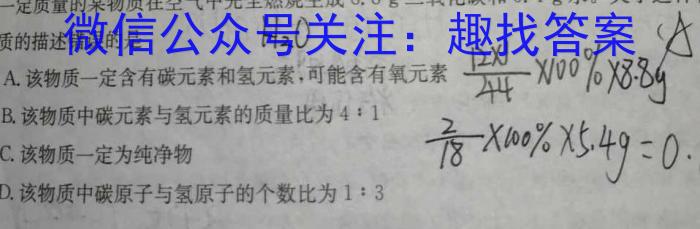 一定质量的某物质在空气中完全燃烧生成8.8g二氧化碳和5.4g水。关于这种
质的描述错误的是
H₂O
微信公众号关注：趣找答案
A
A.该物质一定含有碳元素和氢元素，可能含有氧元素
12×1/44 ×100%×8.8g
B.该物质中碳元素与氢元素的质量比为4：1
2/18 ×100%×5.4g=0.
C.该物质一定为纯净物
D.该物质中碳原子与氢原子的个数比为1：3